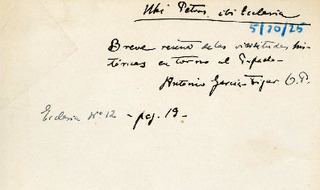 Ubi Petrus ibi Ecclesia
5/10/25
Breve reseña de las vicisitudes his-
tóricas en torno al Papado -
Antonio García Figar O.P.
Ecclesia Nº 12 - pag. 19 -